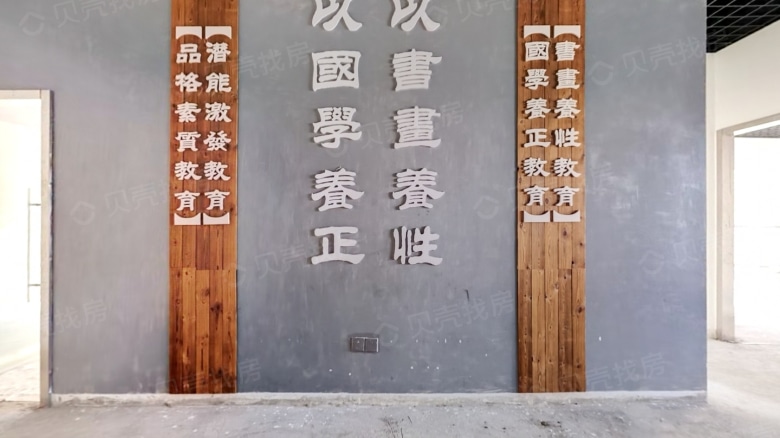 【書畫養性教育】
【國學養正教育】
以書畫養性
以國學養正
【潛能激發教育】
【品格素質教育】
贝壳找房